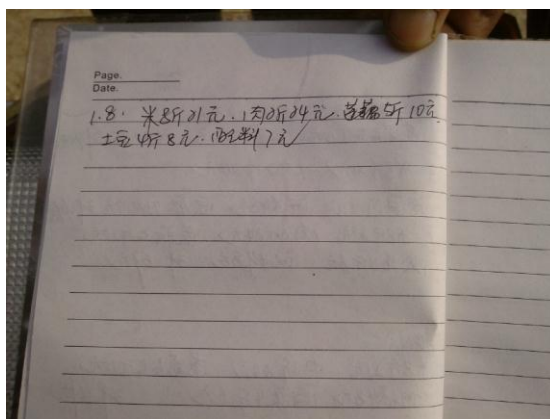 Page.
Date.
1.8. 米8斤21元.肉2斤24元.苔菇5斤10元.
土豆4斤8元.配料7元